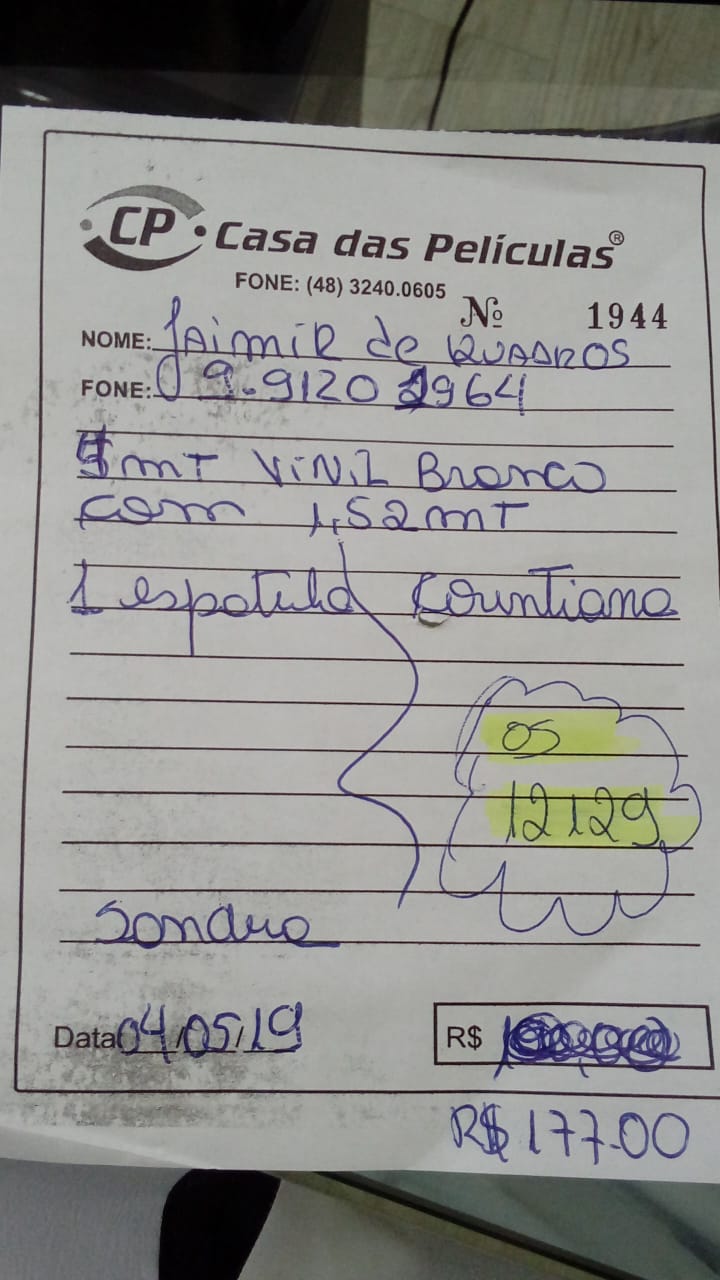 CP • Casa das Películas®
FONE: (48) 3240.0605
Nº 1944
NOME: Jaimir de Quadros
FONE: 9.9120 2964
mt Vinil Branco
com 1,52mt
1 espatula
OS
12129
Sandra
Data 04/05/19
R$
R$ 177.00